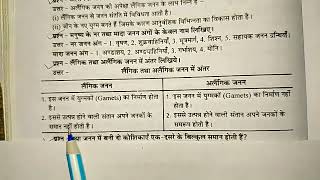 प्रश्न - अलैंगिक जनन की अपेक्षा लैंगिक जनन के लाभ लिखें ।
(i) लैंगिक जनन से जनन संतति में विविधता आती है ।
(ii) जीन के नए युग्म बनते हैं जिसके कारण आनुवंशिक विभिन्नता का विकास होता है ।
प्रश्न - मनुष्य के नर तथा मादा जनन अंगों के केवल नाम लिखिए ।
उत्तर - नर जनन अंग - 1. वृषण, 2. शुक्रवाहिनियाँ, 3. मूत्रमार्ग, 4. शिश्न, 5. सहायक जनन ग्रन्थियाँ।
मादा जनन अंग - 1. अण्डाशय, 2. अण्डवाहिनियाँ, 3. गर्भाशय, 4. योनि।
प्रश्न - लैंगिक-अलैंगिक जनन में अंतर लिखिये ।
लैंगिक तथा अलैंगिक जनन में अंतर
लैंगिक जनन अलैंगिक जनन
1. इस जनन में युग्मकों (Gamets) का निर्माण होता है। 1. इस जनन में युग्मकों (Gamets) का निर्माण नहीं होता है ।
2. इससे उत्पन्न होने वाली संतान अपने जनकों के समान नहीं होती है । 2. इससे उत्पन्न होने वाली संतान अपने जनकों के समरूप होती है ।
प्रश्न जनन में बनी दो कोशिकाएँ एक-दूसरे के बिल्कुल समान होती हैं?